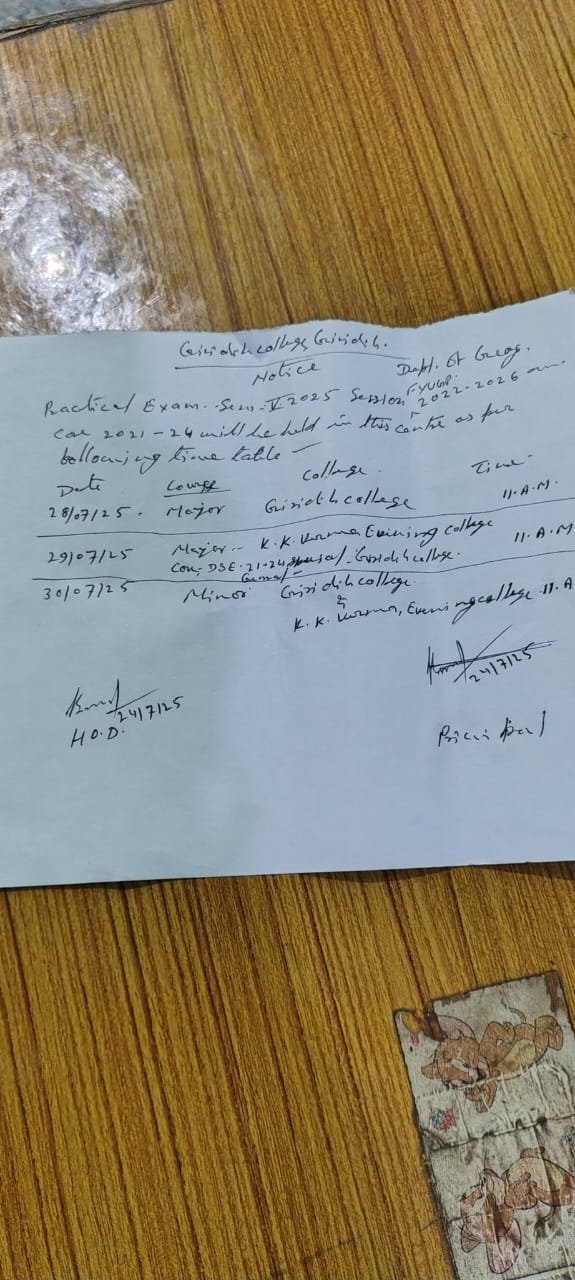 Giridih college, Giridih.
Notice
Dept. of Geog.
Practical Exam. Sem. V 2025 Session FYUGP 2022-2026 and
2021-24 will be held in this centre as per
following time table —
Date Course College. Time
28/07/25. Major Giridih college 11.A.M.
29/07/25 Major - K.K. Verma Evening college 11.A.M
DSE. 21-24 Giridih college.
General
30/07/25 Minor Giridih college
&
K.K. Verma, Evening college 11.A
24/7/25
H.O.D.
24/7/25
Principal